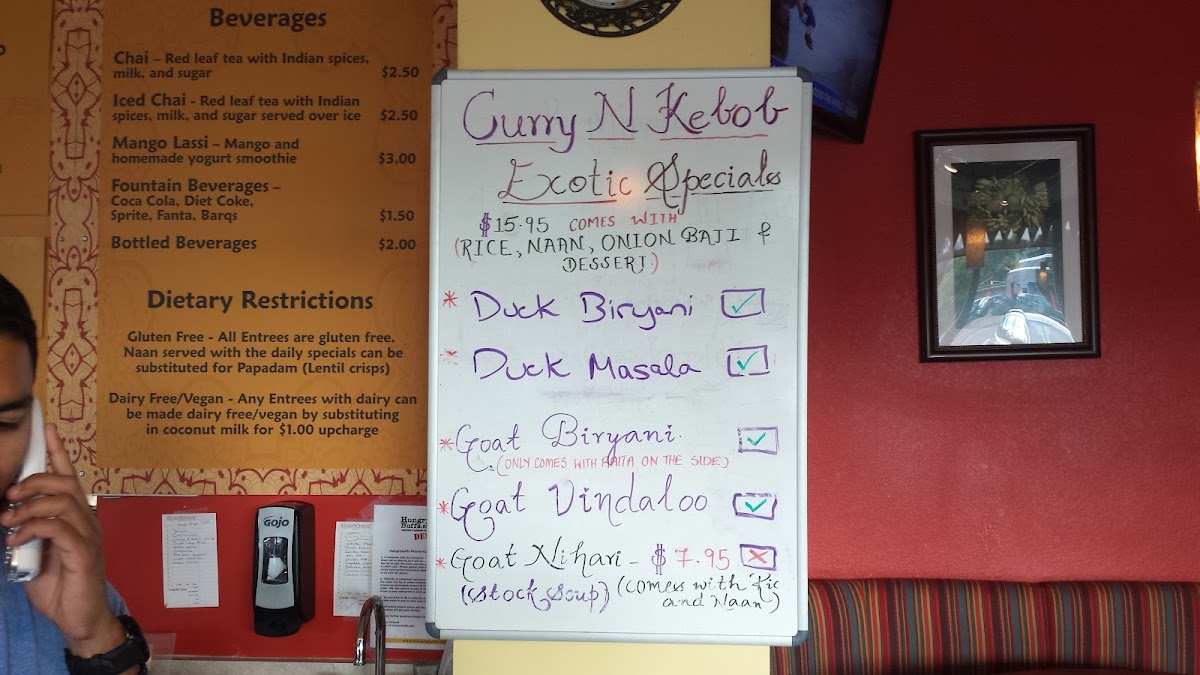 Beverages
Chai – Red leaf tea with Indian spices,
milk, and sugar $2.50
Iced Chai - Red leaf tea with Indian
spices, milk, and sugar served over ice $2.50
Mango Lassi – Mango and
homemade yogurt smoothie $3.00
Fountain Beverages –
Coca Cola, Diet Coke,
Sprite, Fanta, Barqs $1.50
Bottled Beverages $2.00
Dietary Restrictions
Gluten Free - All Entrees are gluten free.
Naan served with the daily specials can be
substituted for Papadam (Lentil crisps)
Dairy Free/Vegan - Any Entrees with dairy can
be made dairy free/vegan by substituting
in coconut milk for $1.00 upcharge
GOJO
Curry N Kebob
Exotic Specials
$15.95 COMES WITH
(RICE, NAAN, ONION BAJI &
DESSERT.)
* Duck Biryani
* Duck Masala
* Goat Biryani.
(ONLY COMES WITH RAITA ON THE SIDE)
* Goat Vindaloo
* Goat Nihari - $7.95
(Stock Soup) (comes with Ric
and Naan)